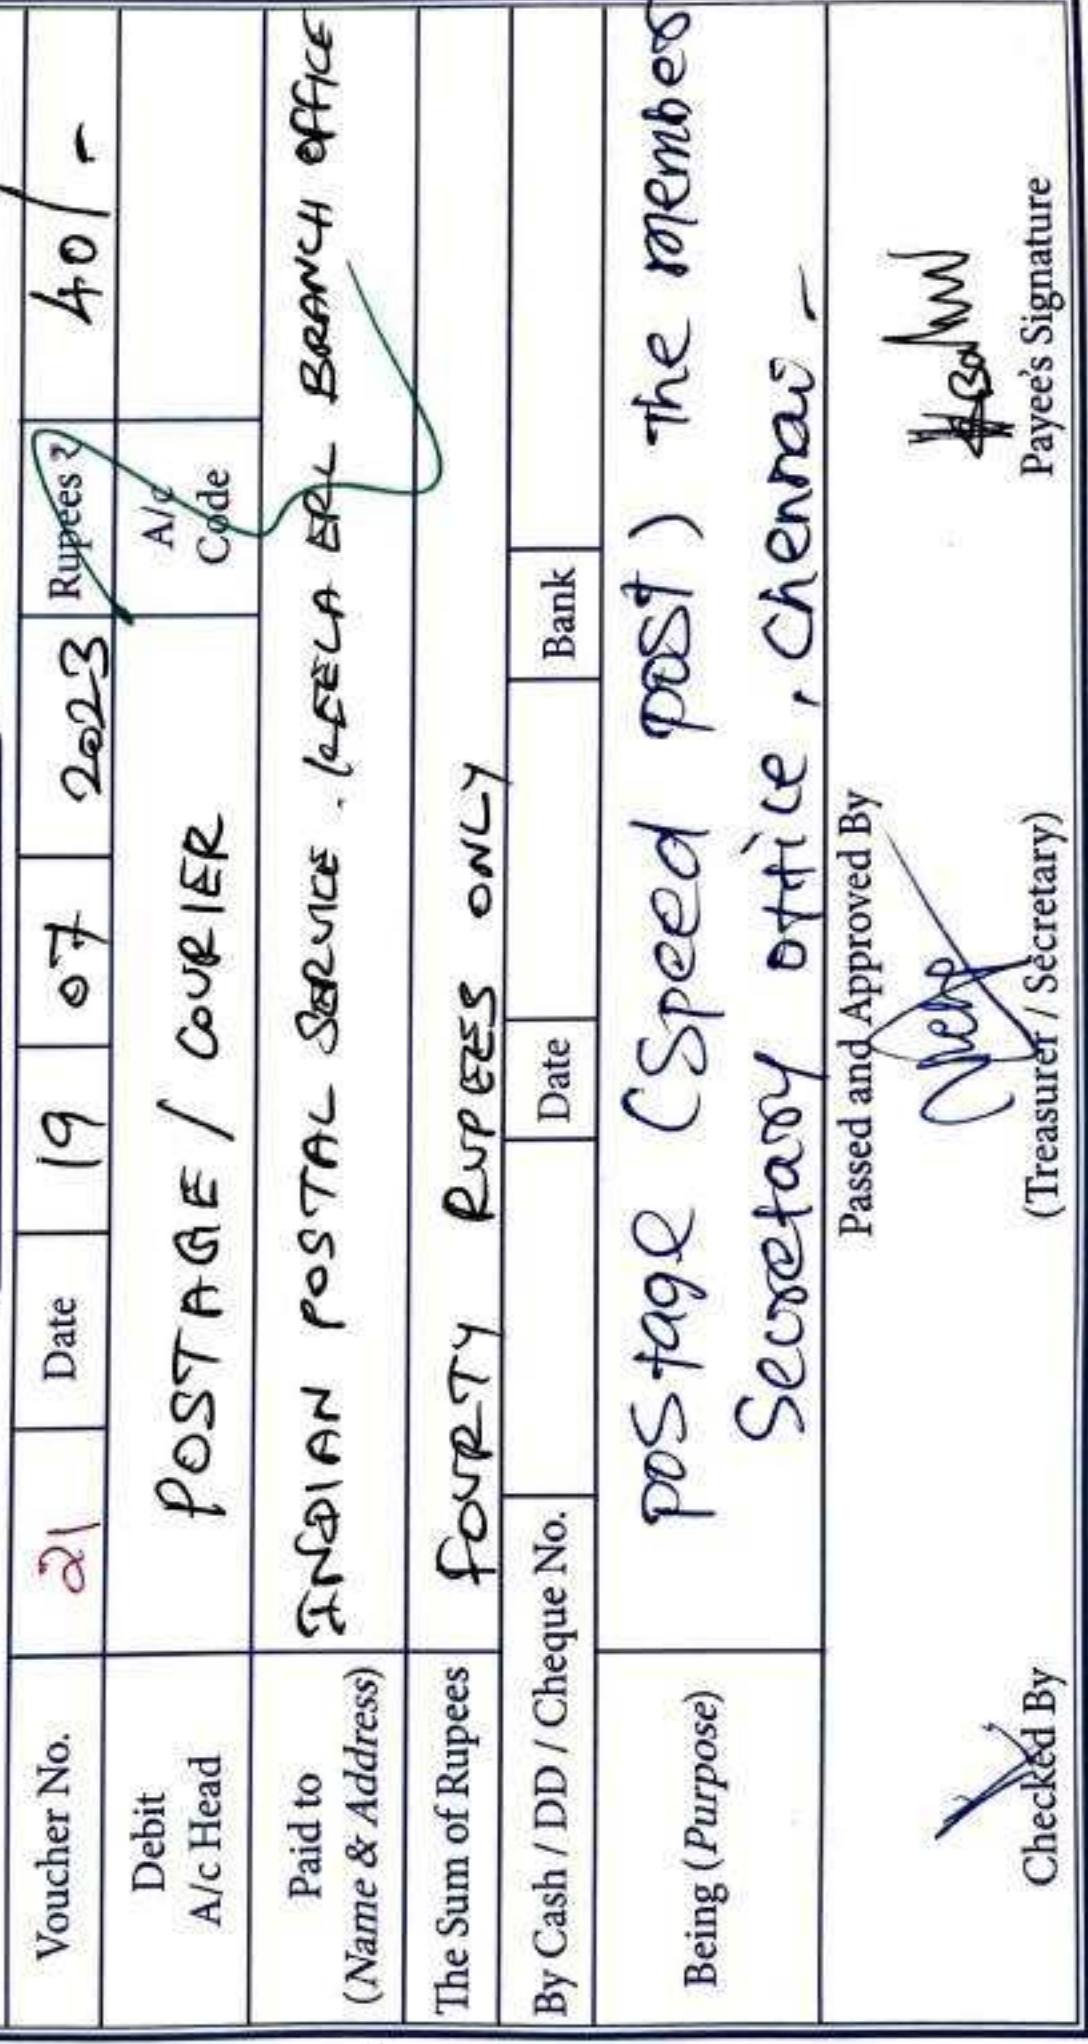 Voucher No. 21 Date 19 07 2023 Rupees ₹ 40/-
Debit
A/c Head
POSTAGE / COURIER
A/c
Code
Paid to
(Name & Address)
INDIAN POSTAL SERVICE. KEELA ERL BRANCH OFFICE
The Sum of Rupees FOURTY RUPEES ONLY
By Cash / DD / Cheque No. Date Bank
Being (Purpose)
postage (Speed post) The member
Secretary office, Chennai -
Passed and Approved By
Checked By (Treasurer / Secretary) Payee's Signature